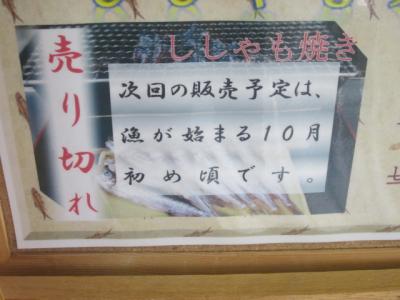 ししゃも焼き
売り切れ
次回の販売予定は、
漁が始まる10月
初め頃です。